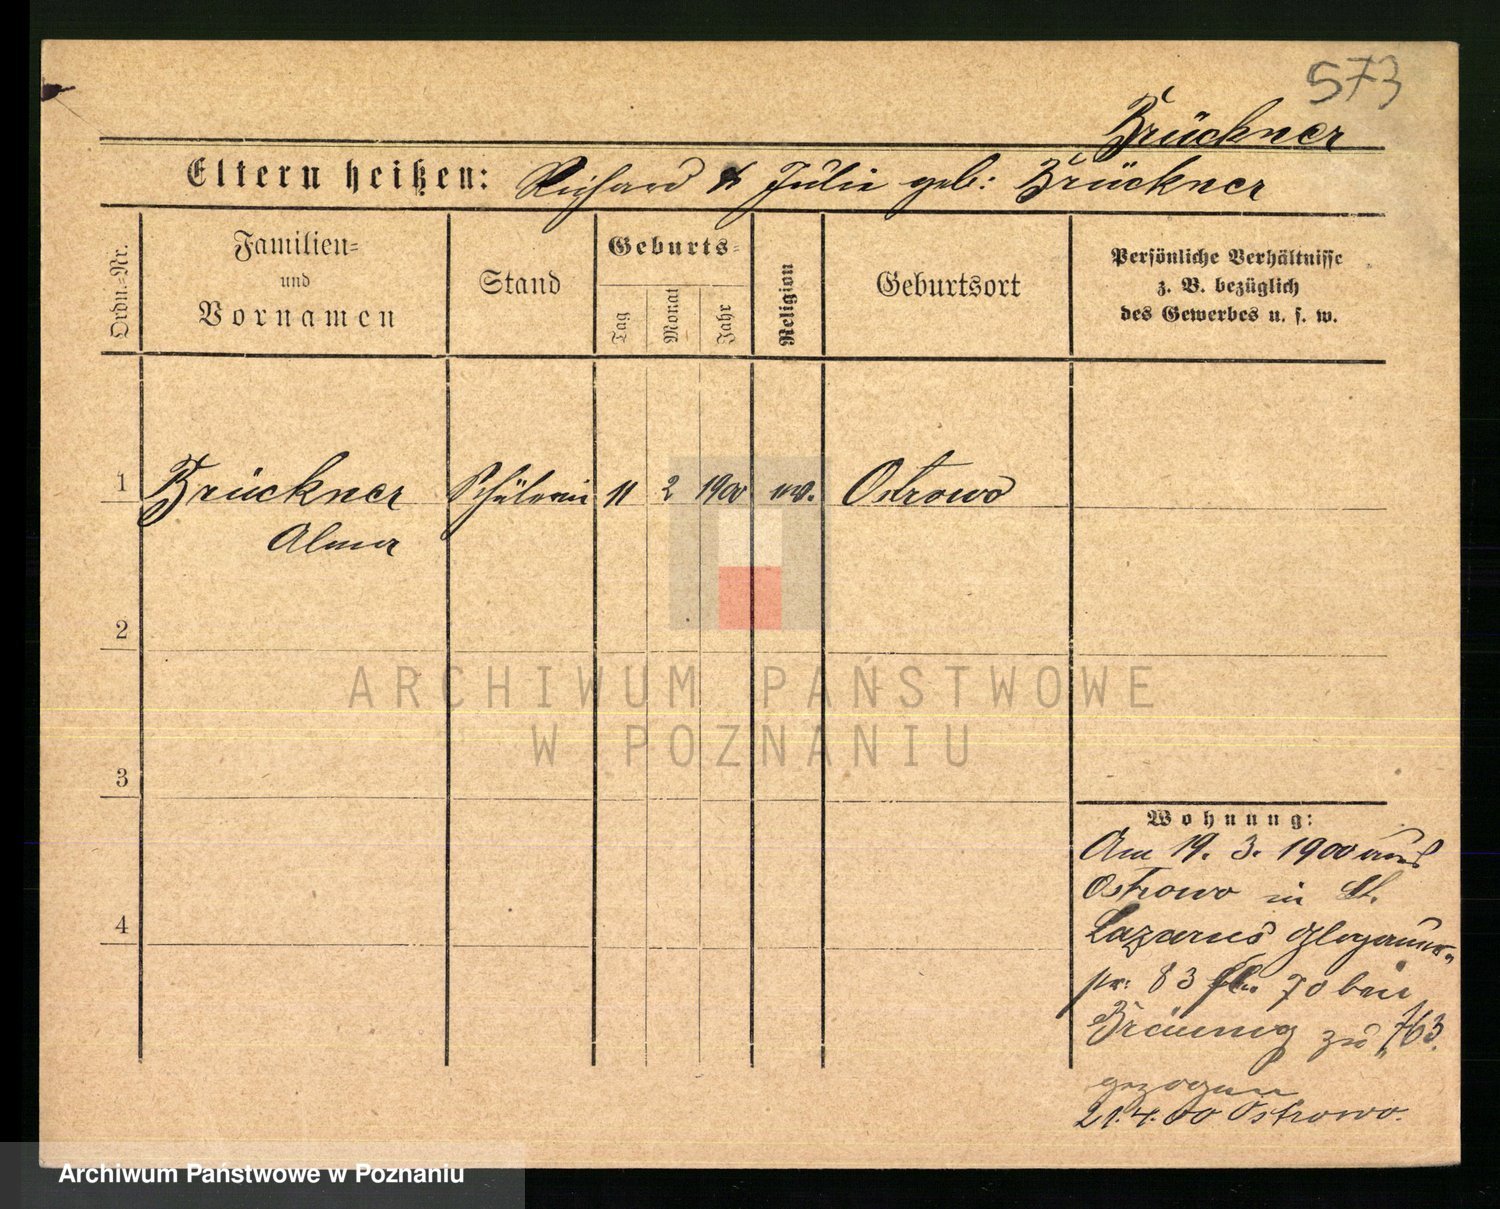 573
Brückner
Eltern heißen: Richard & Julie geb: Brückner
Ordn.-Nr.
Familien-
und
Vornamen
Stand
Geburts-
Tag
Monat
Jahr
Religion
Geburtsort
Persönliche Verhältnisse
z. B. bezüglich
des Gewerbes u. s. w.
1 Brückner Schülerin 11 2 1900 ev. Ostrowo
Alma
2
ARCHIWUM PAŃSTWOWE
W POZNANIU
3
Wohnung:
Am 19. 3. 1900 aus
Ostrowo in St.
Lazarus Glogauer-
4
str: 83 70 bei
Bräunig zu 763.
gezogen
21.4.00 Ostrowo.
Archiwum Państwowe w Poznaniu